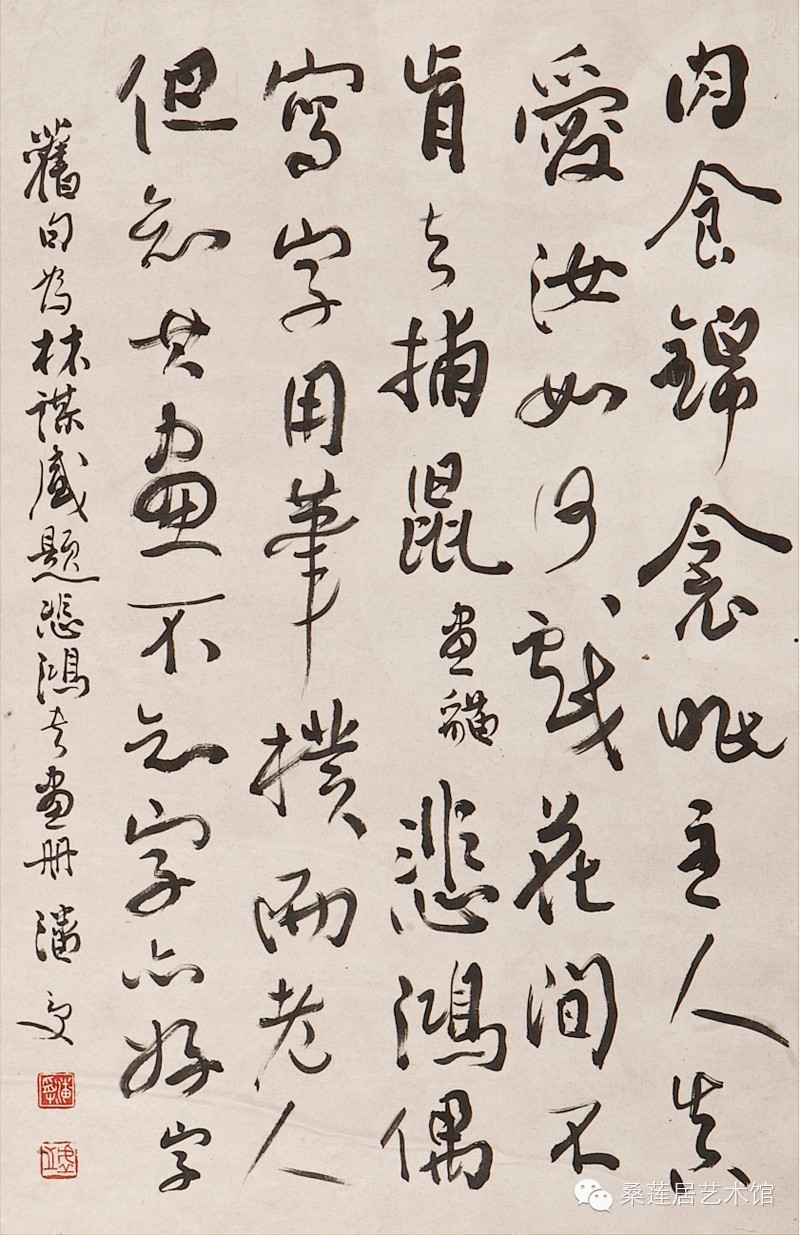 肉食錦衾眠主人真
愛汝如何戲花間不
肯去捕鼠畫貓悲鴻偶
寫字用筆樸而老人
但知其畫不知字亦好字
舊句為林謀盛題悲鴻畫冊潘受
桑莲居艺术馆